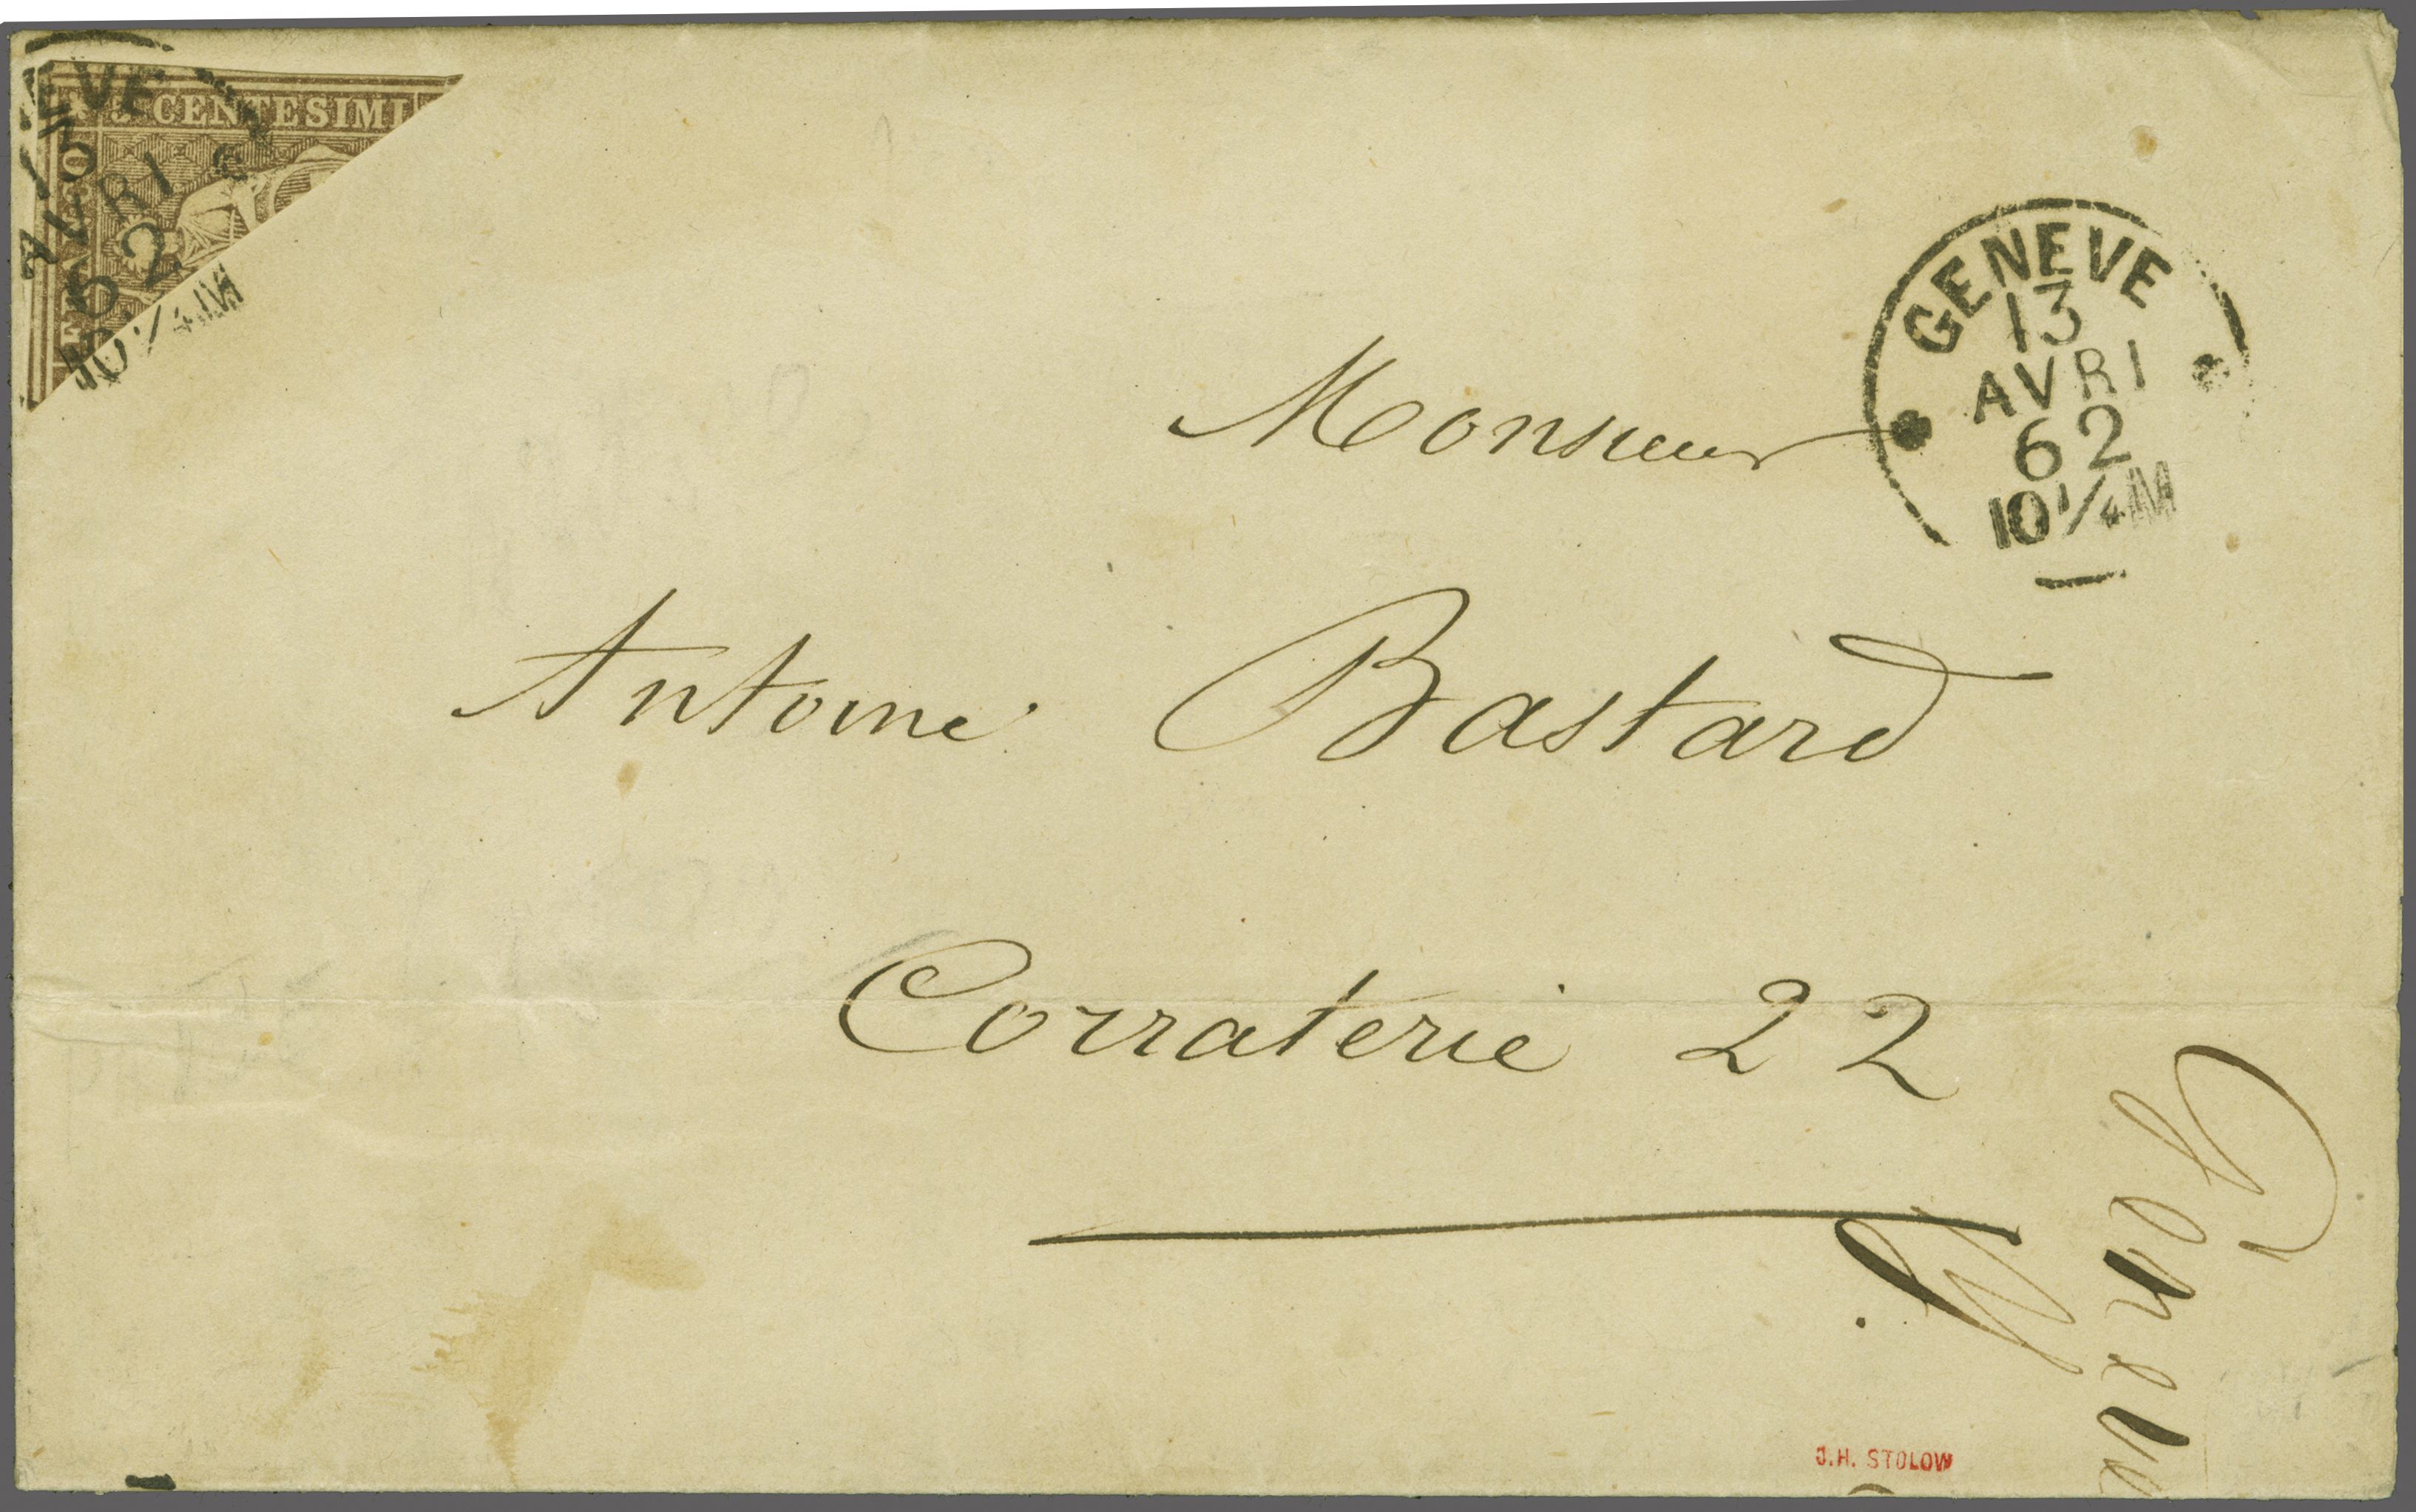 EVE
13
AVRI
62
10¼M
5 CENTESIMI
GENEVE
13
AVRI
62
10¼M
Monsieur
Antoine Bastard
Corraterie 22
Genève
J.H. STOLOW